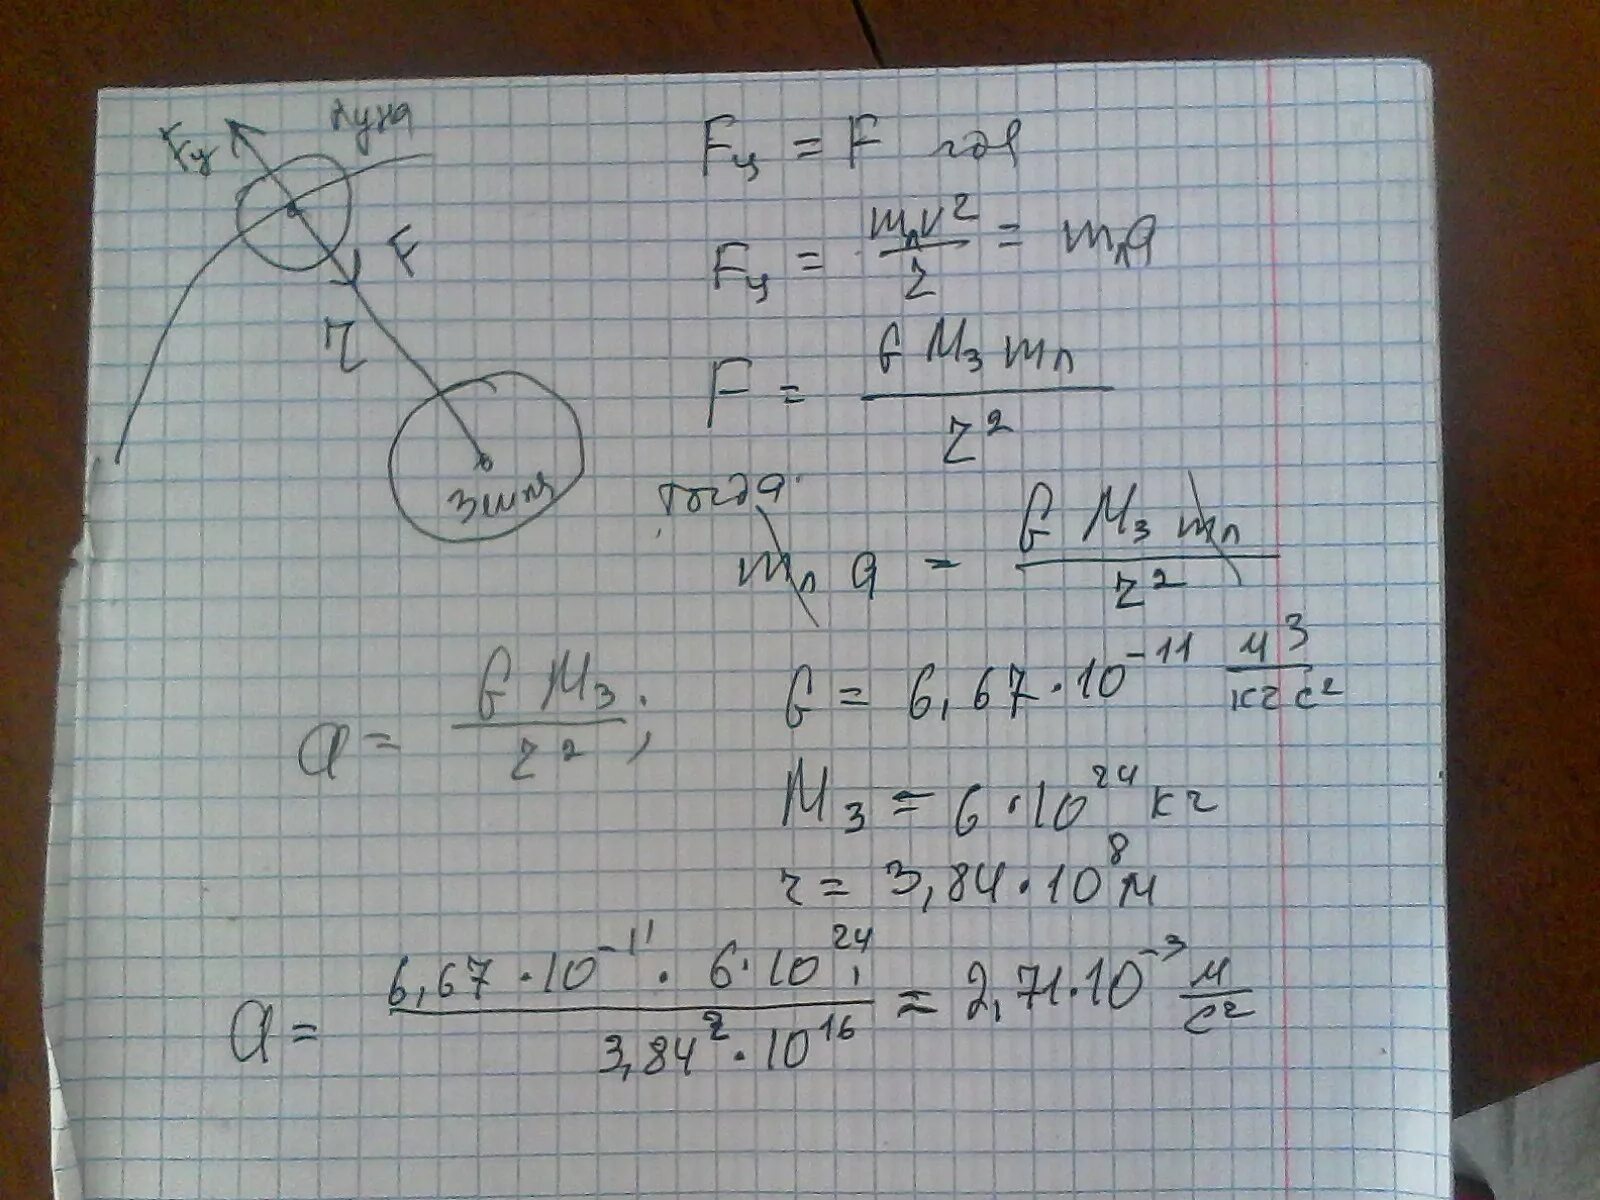 Луна
Fц
F
r
Земля
Fц = F где
Fц = mлv²/r = mлa
F = G Mз mл / r²
тогда
mл a = G Mз mл / r²
a = G Mз / r² ;
G = 6,67·10⁻¹¹ м³/кг с²
Mз = 6·10²⁴ кг
r = 3,84·10⁸ м
a = 6,67·10⁻¹¹ · 6·10²⁴ / 3,84²·10¹⁶ = 2,71·10⁻³ м/с²